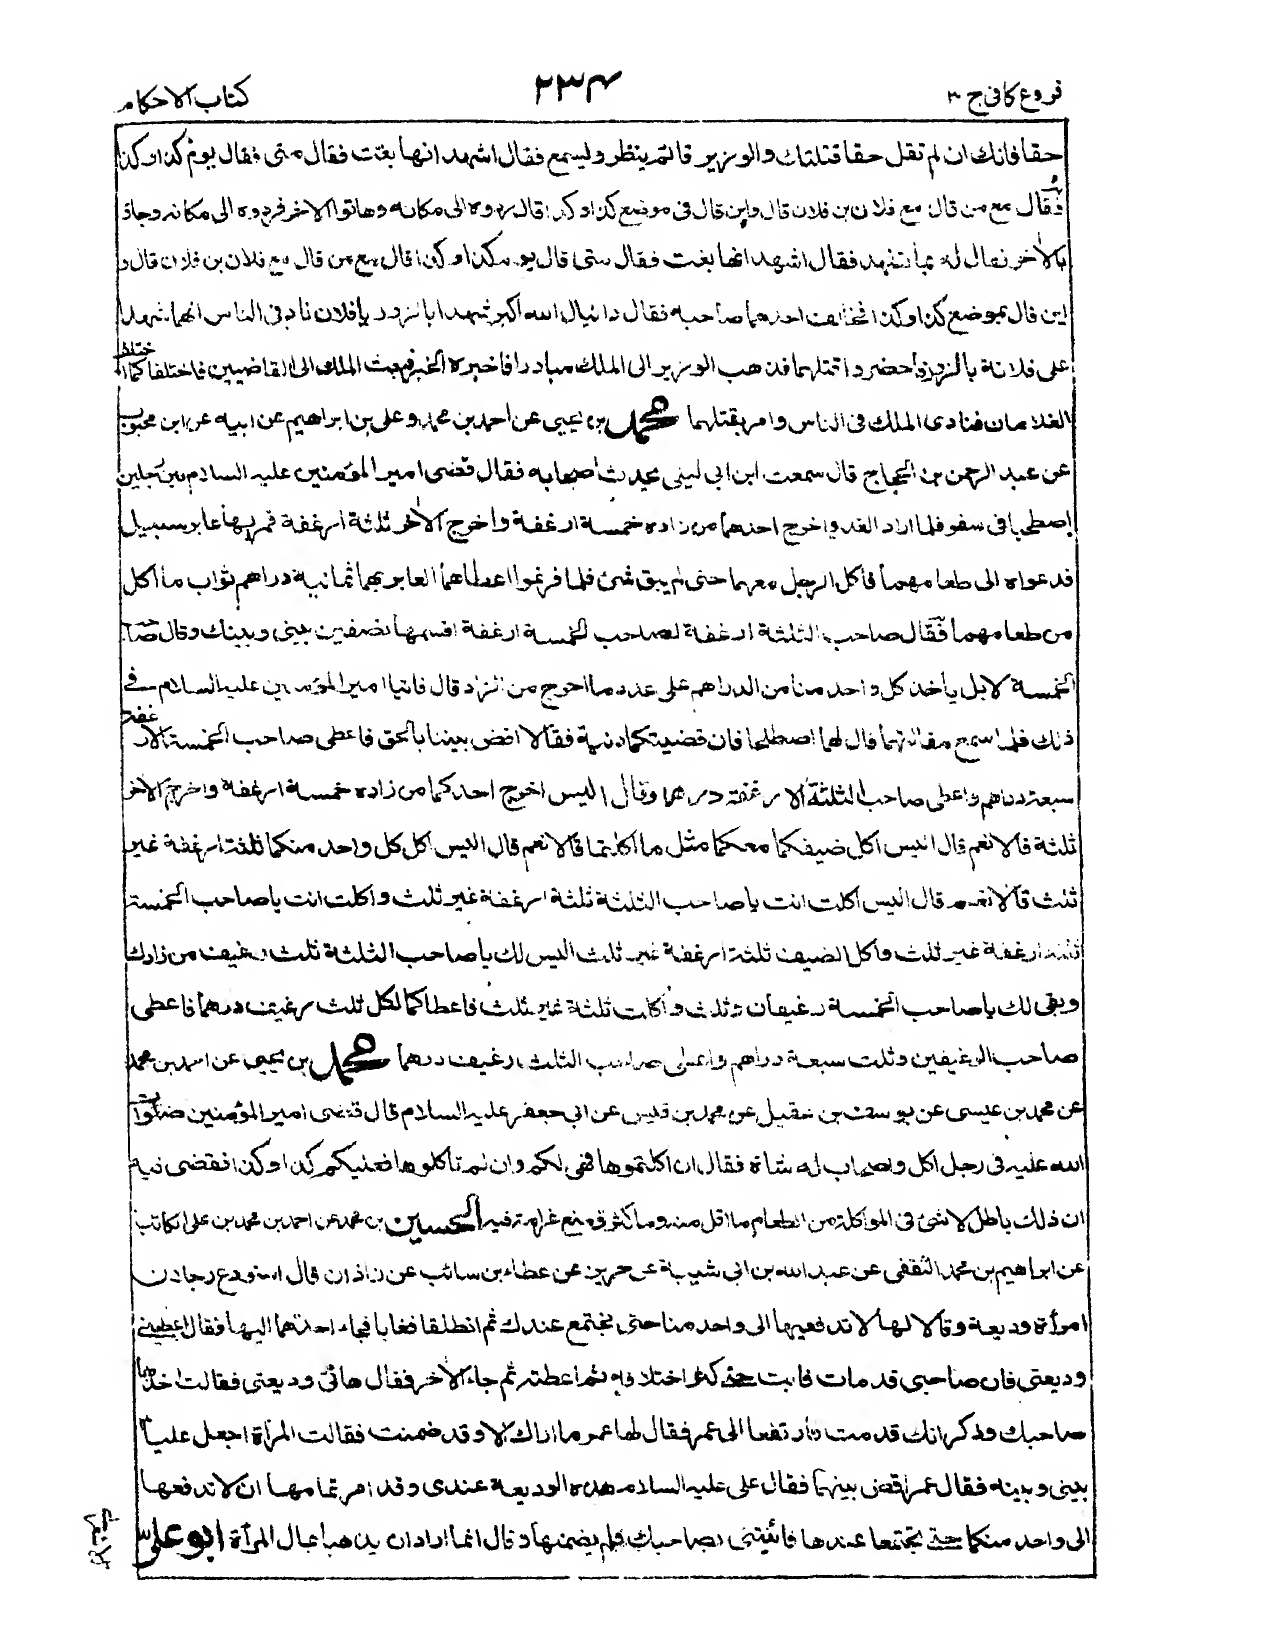 فروع کافی ج ۳
۲۳۴
کتاب الاحکام
حقا فانك ان لم تقل حقا قتلتك والوزير قائم ينظر وليسمع فقال اشهد انها بغت فقال متى فقال يوم كذا وكذا
فقال مع من قال مع فلان بن فلان قال واين قال فى موضع كذا وكذا قال ردوه الى مكانه وهاتوا الاخر فردوه الى مكانه وجاؤ
بالاخر فقال له بما تشهد فقال اشهد انها بغت فقال متى قال يوم كذا وكذا قال مع من قال مع فلان بن فلان قال و
اين قال بموضع كذا وكذا فخالف احدهما صاحبه فقال دانيال الله اكبر شهدا بالزور يا فلان ناد فى الناس انهما شهدا
على فلانة بالزور فاحضروا قتلهما فذهب الوزير الى الملك مبادرا فاخبره الخبر فبعث الملك الى القاضيين فاختلفا كما اختلف
الغلامان فنادى الملك فى الناس وامر بقتلهما محمد بن يحيى عن احمد بن محمد وعلى بن ابراهيم عن ابيه عن ابن محبوب
عن عبد الرحمن بن الحجاج قال سمعت ابن ابى ليلى يحدث اصحابه فقال قضى امير المؤمنين عليه السلام بين رجلين
اصطحبا فى سفر فلما اراد الغدو اخرج احدهما من زاده خمسة ارغفة واخرج الاخر ثلثة ارغفة فمر بهما عابر سبيل
فدعواه الى طعامهما فاكل الرجل معهما حتى لم يبق شئ فلما فرغوا اعطاهما العابر بهما ثمانية دراهم ثواب ما اكل
من طعامهما فقال صاحب الثلثة ارغفة لصاحب الخمسة ارغفة اقسمها نصفين بينى وبينك وقال صاحب
الخمسة لا بل يأخذ كل واحد منا من الدراهم على عدد ما اخرج من الزاد قال فاتيا امير المؤمنين عليه السلام فى
ذلك فلما سمع مقالتهما قال لهما اصطلحا فان قضيتكما دنية فقالا اقض بيننا بالحق فاعطى صاحب الخمسة الارغفة
سبعة دراهم واعطى صاحب الثلثة الارغفة درهما وقال اليس اخرج احدكما من زاده خمسة ارغفة واخرج الاخر
ثلثة قالا نعم قال اليس اكل ضيفكما معكما مثل ما اكلتما قالا نعم قال اليس اكل كل واحد منكما ثلثة ارغفة غير
ثلث قالا نعم قال اليس اكلت انت يا صاحب الثلثة ثلثة ارغفة غير ثلث واكلت انت يا صاحب الخمسة
ثلثة ارغفة غير ثلث واكل الضيف ثلثة ارغفة غير ثلث اليس لك يا صاحب الثلثة ثلث رغيف من زادك
وبقى لك يا صاحب الخمسة رغيفان وثلث واكلت ثلثة غير ثلث فاعطاكما لكل ثلث رغيف درهما فاعطى
صاحب الرغيفين وثلث سبعة دراهم واعطى صاحب الثلث رغيف درهما محمد بن يحيى عن احمد بن محمد
عن محمد بن عيسى عن يوسف بن عقيل عن محمد بن قيس عن ابى جعفر عليه السلام قال قضى امير المؤمنين صلوات
الله عليه فى رجل اكل واصحاب له شاة فقال ان اكلتموها فهى لكم وان لم تاكلوها فعليكم كذا وكذا فقضى فيه
ان ذلك باطل لا شئ فى المواكلة من الطعام ما قل منه وما كثر ومنع غرامته فيه الحسين بن محمد عن احمد بن محمد بن على الكاتب
عن ابراهيم بن محمد الثقفى عن عبد الله بن ابى شيبة عن حريز عن عطاء بن سائب عن زاذان قال استودع رجلان
امرأة وديعة وقالا لها لا تدفعيها الى واحد منا حتى نجتمع عندك ثم انطلقا فغابا فجاء احدهما اليها فقال اعطينى
وديعتى فان صاحبى قد مات فابت حتى كثر اختلافه ثم اعطته ثم جاء الاخر فقال هاتى وديعتى فقالت اخذها
صاحبك وذكر انك قد مت فارتفعا الى عمر فقال لها عمر ما اراك الا وقد ضمنت فقالت المرأة اجعل عليا
بينى وبينه فقال عمر اقض بينهما فقال على عليه السلام هذه الوديعة عندى وقد امرتماها ان لا تدفعها
الى واحد منكما حتى تجتمعا عندها فائتنى بصاحبك فلم يضمنها وقال انما ارادا ان يذهبا بمال المرأة ابو على